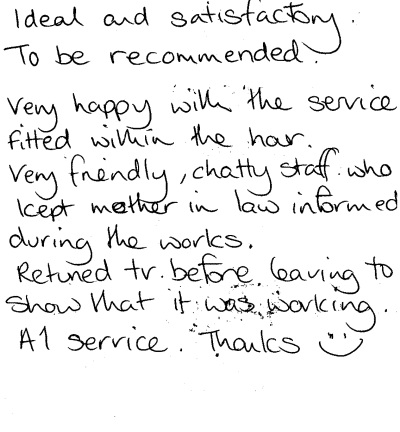 Ideal and satisfactory.
To be recommended.
Very happy with the service
fitted within the hour.
Very friendly, chatty staff who
kept mother in law informed
during the works.
Retuned tv. before leaving to
show that it was working.
A1 service. Thanks